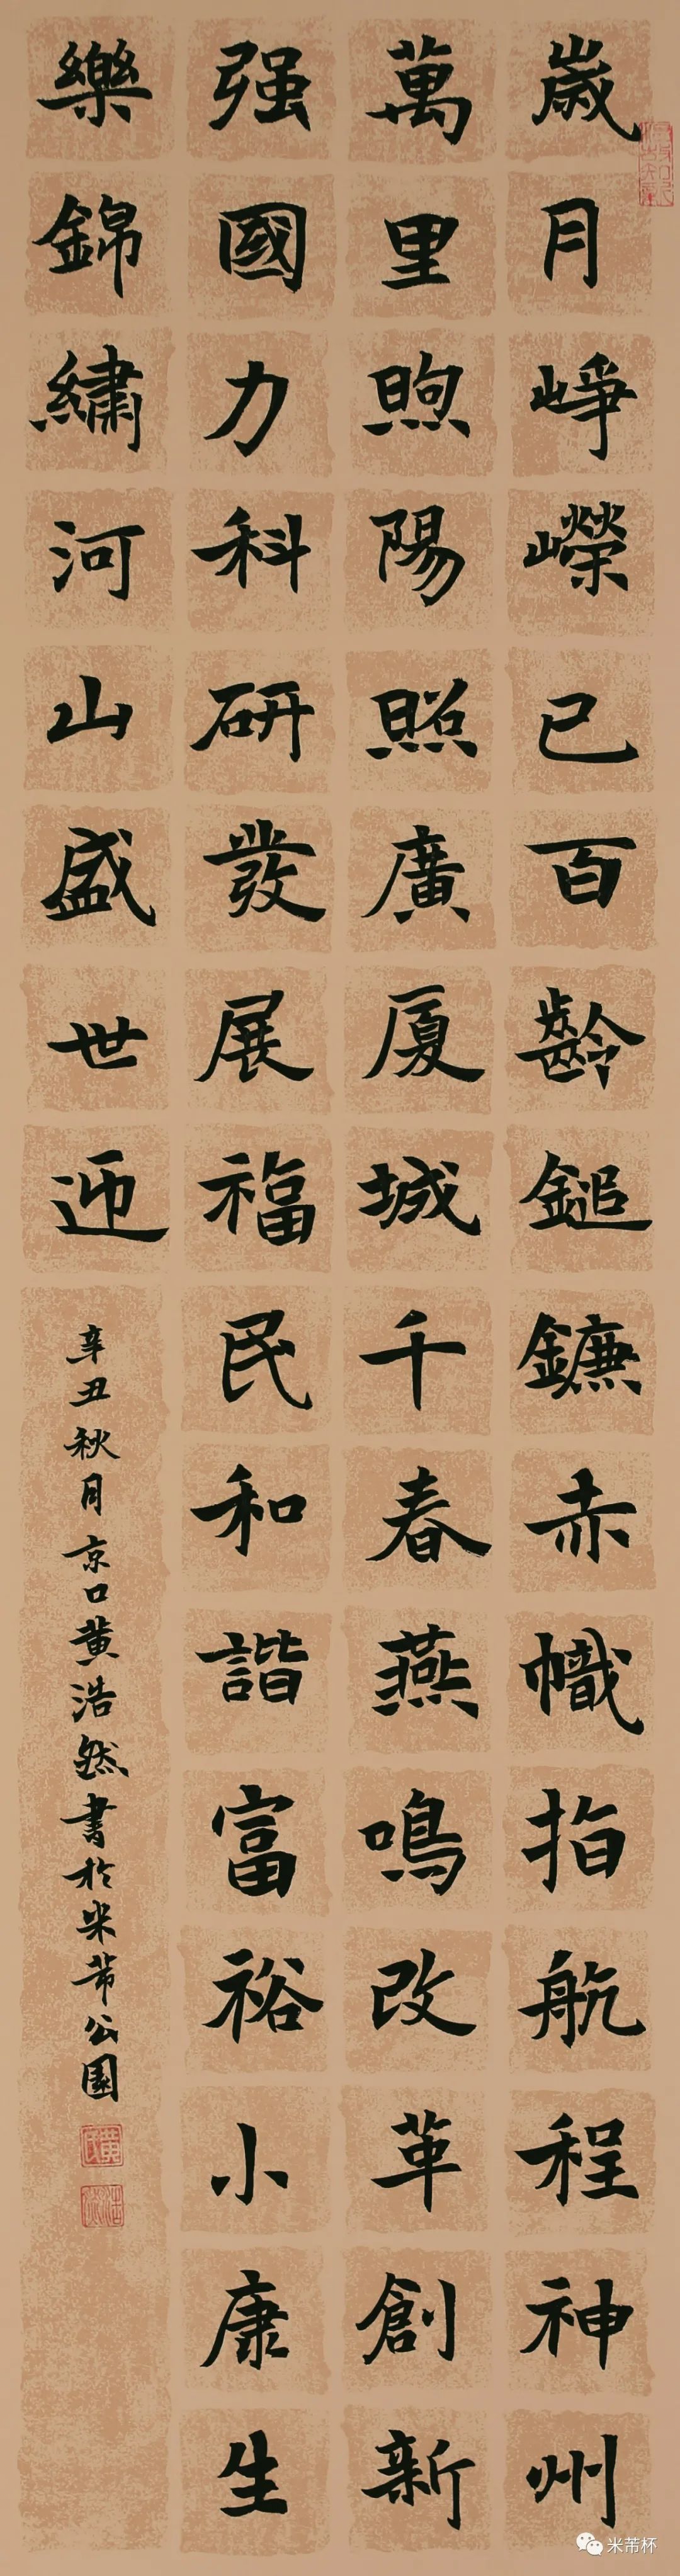 歲月崢嶸已百齡鎚鐮赤幟指航程神州
萬里煦陽照廣厦城千春燕鳴改革創新
强國力科研發展福民和諧富裕小康生
樂錦繡河山盛世迎
辛丑秋月京口黄浩然書於米芾公園
黄氏
浩然
米芾杯